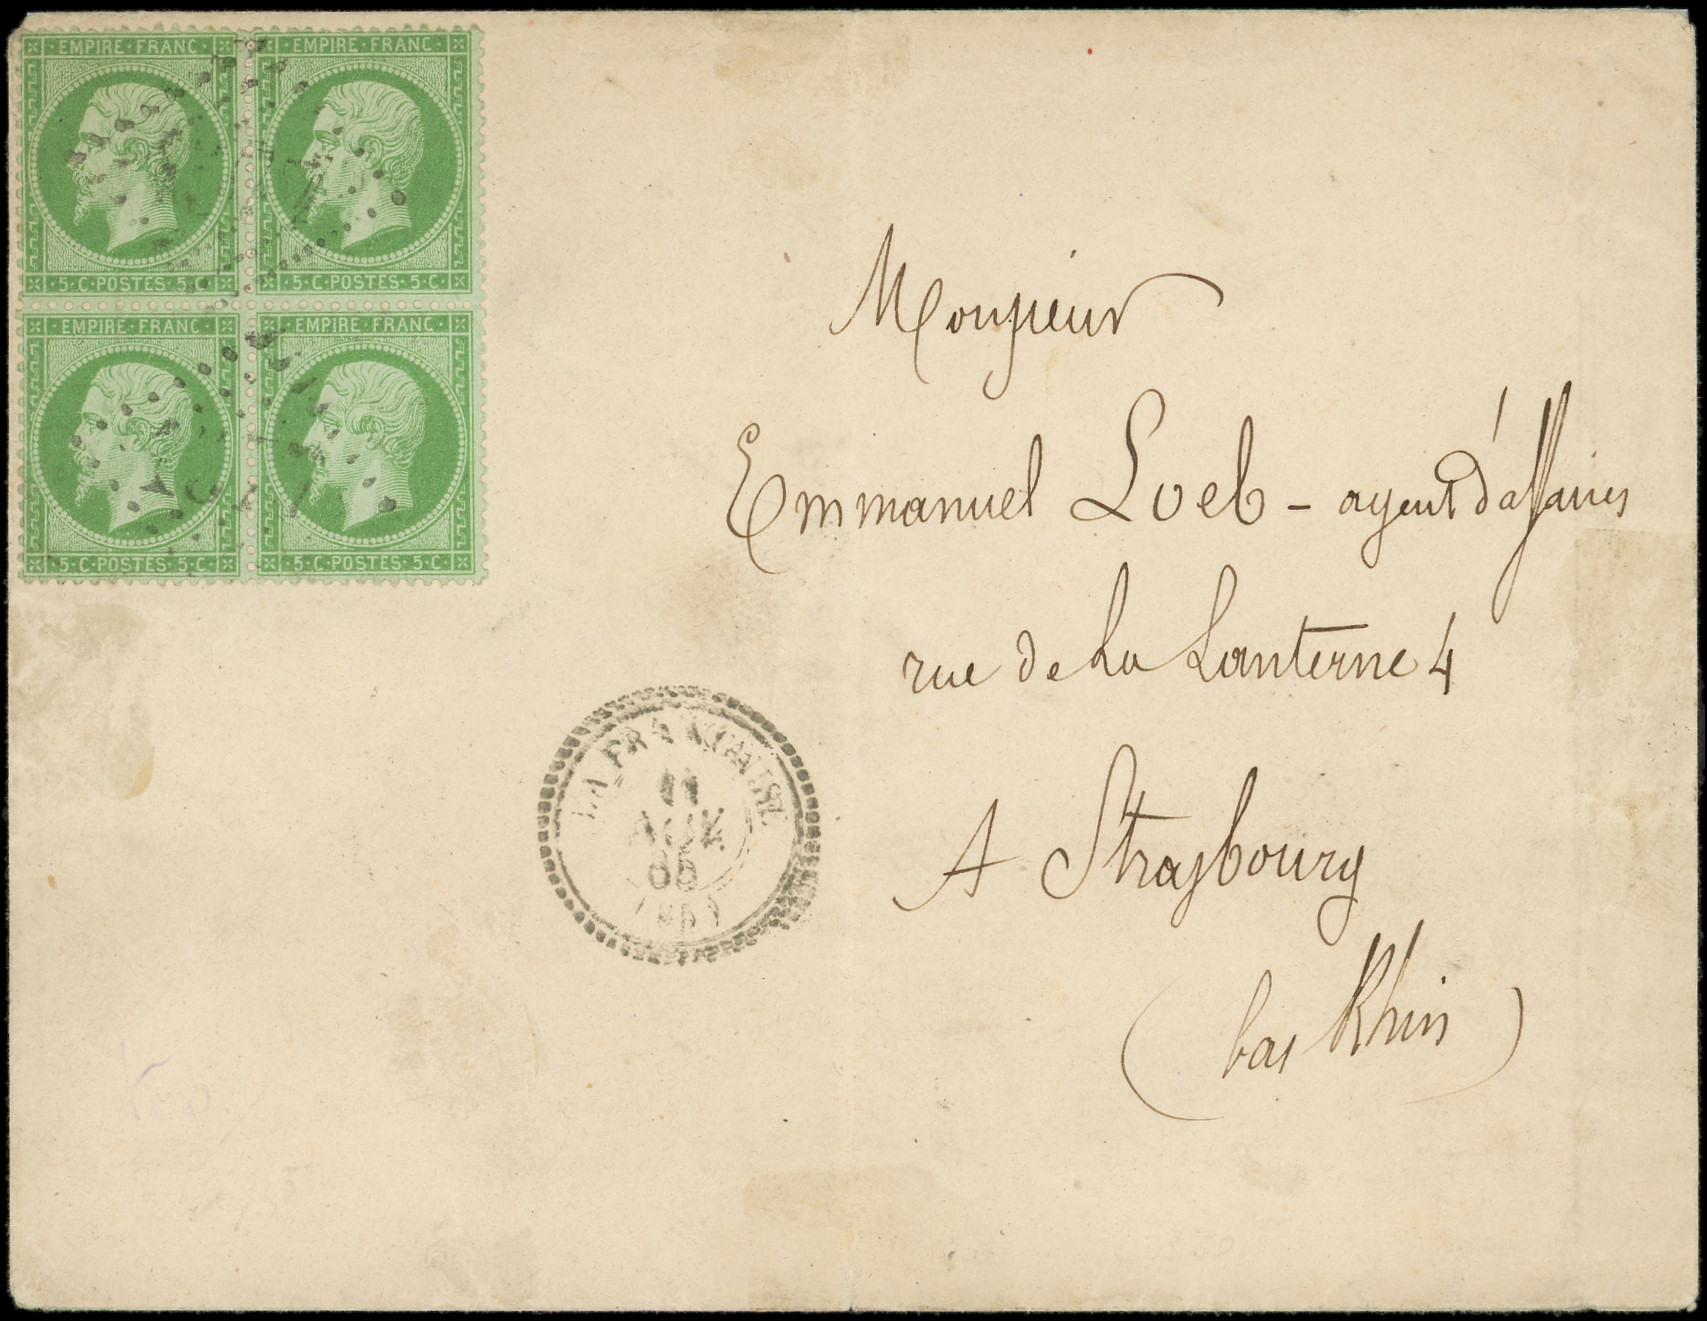 EMPIRE·FRANC· EMPIRE·FRANC·
·5·C·POSTES·5·C· ·5·C·POSTES·5·C·
EMPIRE·FRANC· EMPIRE·FRANC·
·5·C·POSTES·5·C· ·5·C·POSTES·5·C·
Monsieur
Emmanuel Loeb – agent d'affaires
rue de La Lanterne 4
A Strasbourg
(bas Rhin)
11